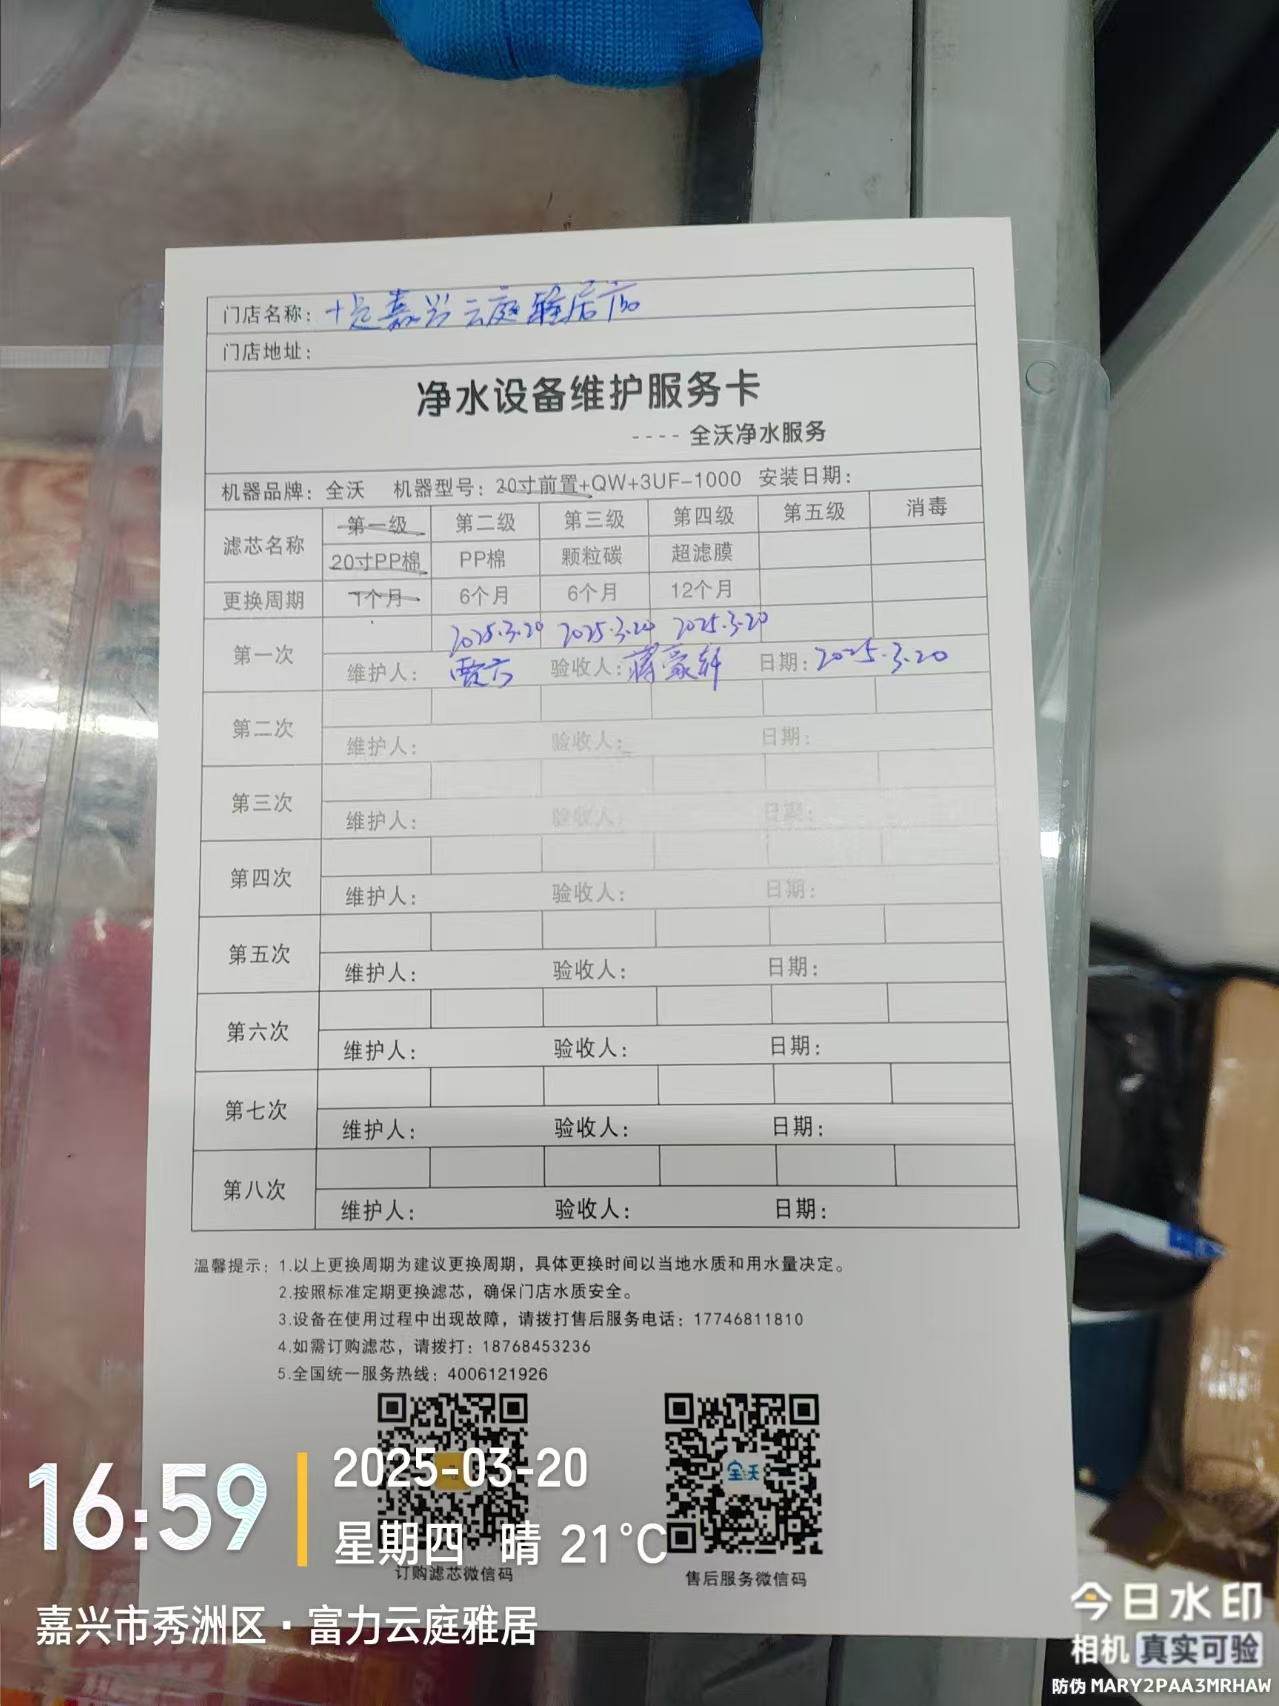 门店名称：十足嘉兴云庭雅居店
门店地址：
净水设备维护服务卡
---- 全沃净水服务
机器品牌：全沃 机器型号：20寸前置+QW+3UF-1000 安装日期：
滤芯名称 第一级 第二级 第三级 第四级 第五级 消毒
20寸PP棉 PP棉 颗粒碳 超滤膜
更换周期 1个月 6个月 6个月 12个月
第一次 2025.3.20 2025.3.20 2025.3.20
维护人： 验收人：蒋豪轩 日期：2025.3.20
第二次
维护人： 验收人： 日期：
第三次
维护人： 验收人： 日期：
第四次
维护人： 验收人： 日期：
第五次
维护人： 验收人： 日期：
第六次
维护人： 验收人： 日期：
第七次
维护人： 验收人： 日期：
第八次
维护人： 验收人： 日期：
温馨提示：1.以上更换周期为建议更换周期，具体更换时间以当地水质和用水量决定。
2.按照标准定期更换滤芯，确保门店水质安全。
3.设备在使用过程中出现故障，请拨打售后服务电话：17746811810
4.如需订购滤芯，请拨打：18768453236
5.全国统一服务热线：4006121926
全沃
订购滤芯微信码 售后服务微信码
16:59
2025-03-20
星期四 晴 21°C
嘉兴市秀洲区·富力云庭雅居
今日水印
相机 真实可验
防伪 MARY2PAA3MRHAW